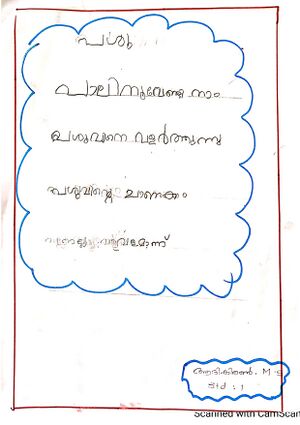 പശു
പാലിനുവേണ്ടി നാം
പശുവിനെ വളർത്തുന്നു
പശുവിന്റെ ചാണകം
വളമാണ്
ആദികിരൺ. M. S
Std : 1
Scanned with CamScan